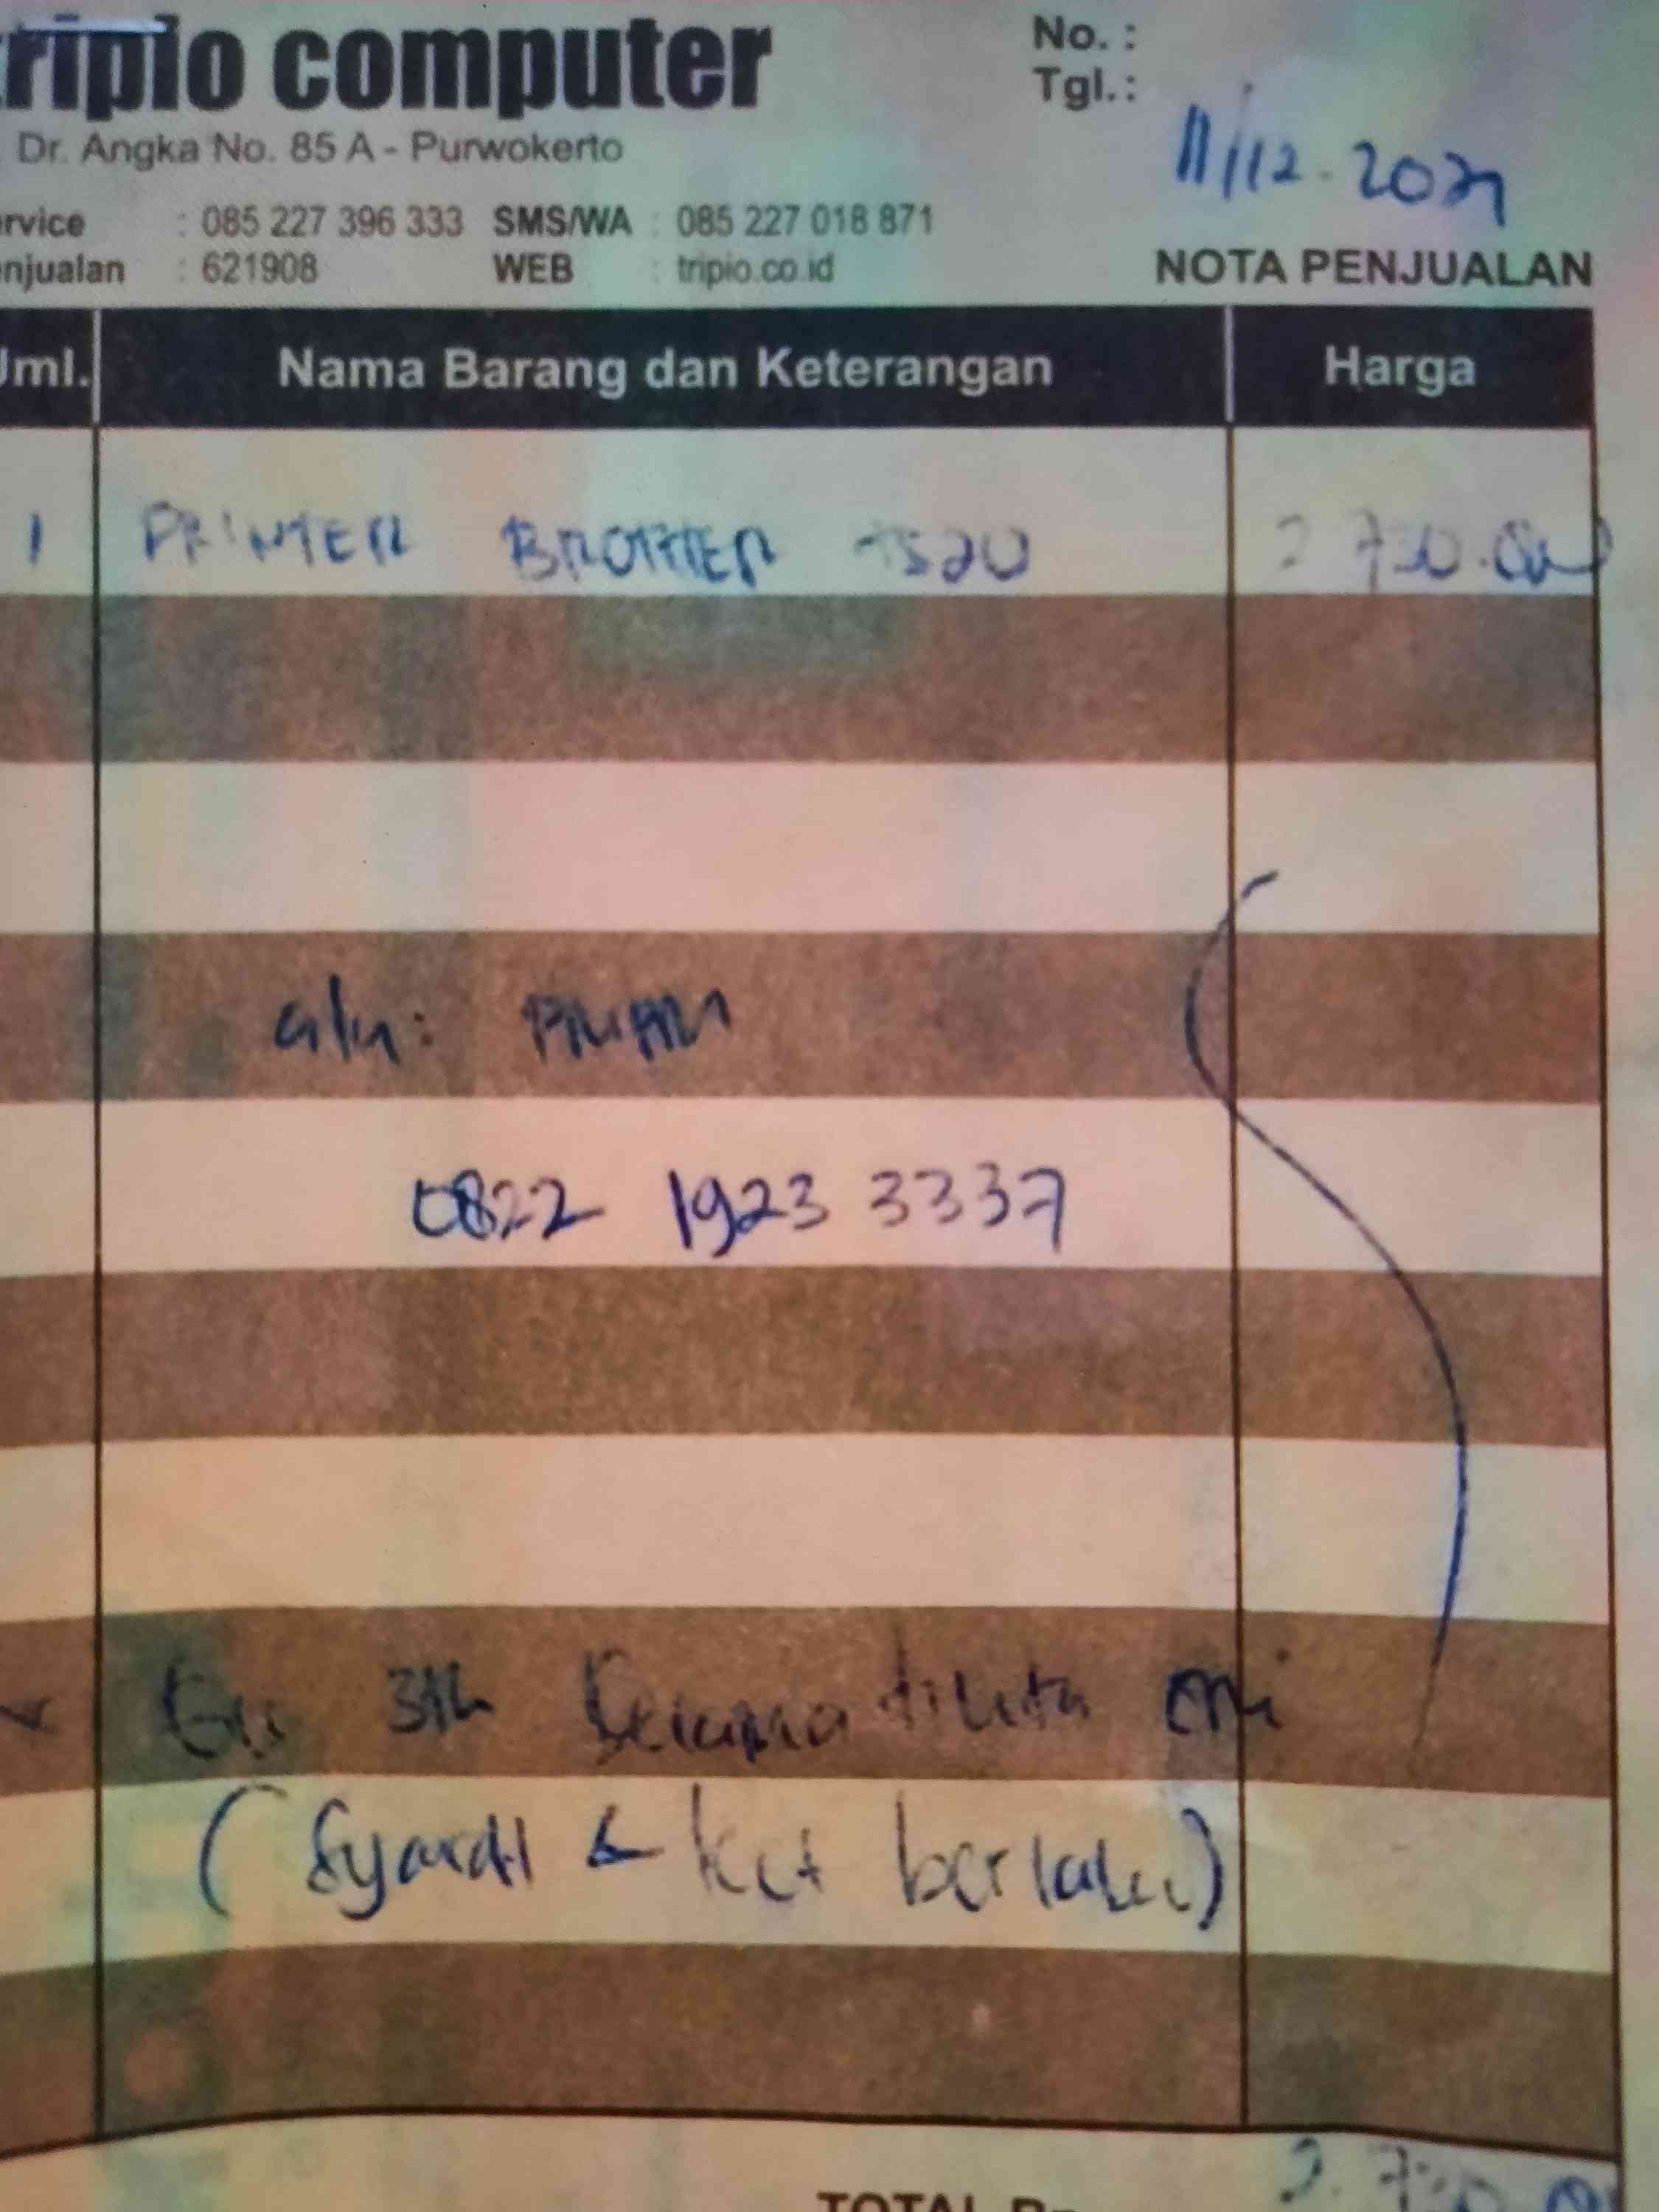 tripio computer
Dr. Angka No. 85 A - Purwokerto
No. :
Tgl. :
11/12 - 2021
rvice : 085 227 396 333 SMS/WA : 085 227 018 871
njualan : 621908 WEB : tripio.co.id
NOTA PENJUALAN
Jml. Nama Barang dan Keterangan Harga
1 PRINTER BROTHER T520 2.730.000
0822 1923 3337
3th tinta
(Syarat & ket berlaku)
TOTAL Rp